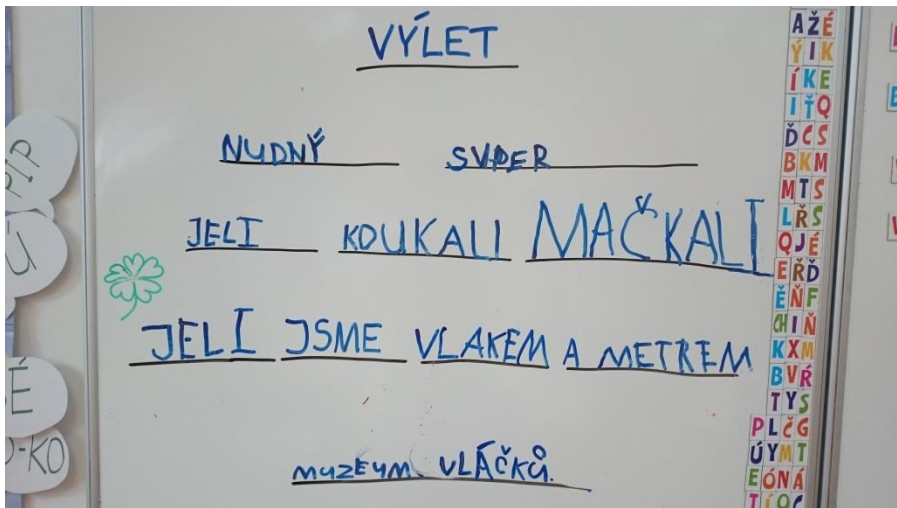 VÝLET
NUDNÝ SUPER
JELI KOUKALI MAČKALI
JELI JSME VLAKEM A METREM
MUZEUM VLÁČKŮ.
PÍP
Ú
É
-KO
A Ž É
Ý I K
Í K E
I Ť Q
Ď C S
B K M
M T S
L Ř S
Q J É
E Ř Ď
Ě Ň F
CH I Ň
K X M
B V Ŕ
T Y S
P L Č G
Ú Y M T
E Ó N Á